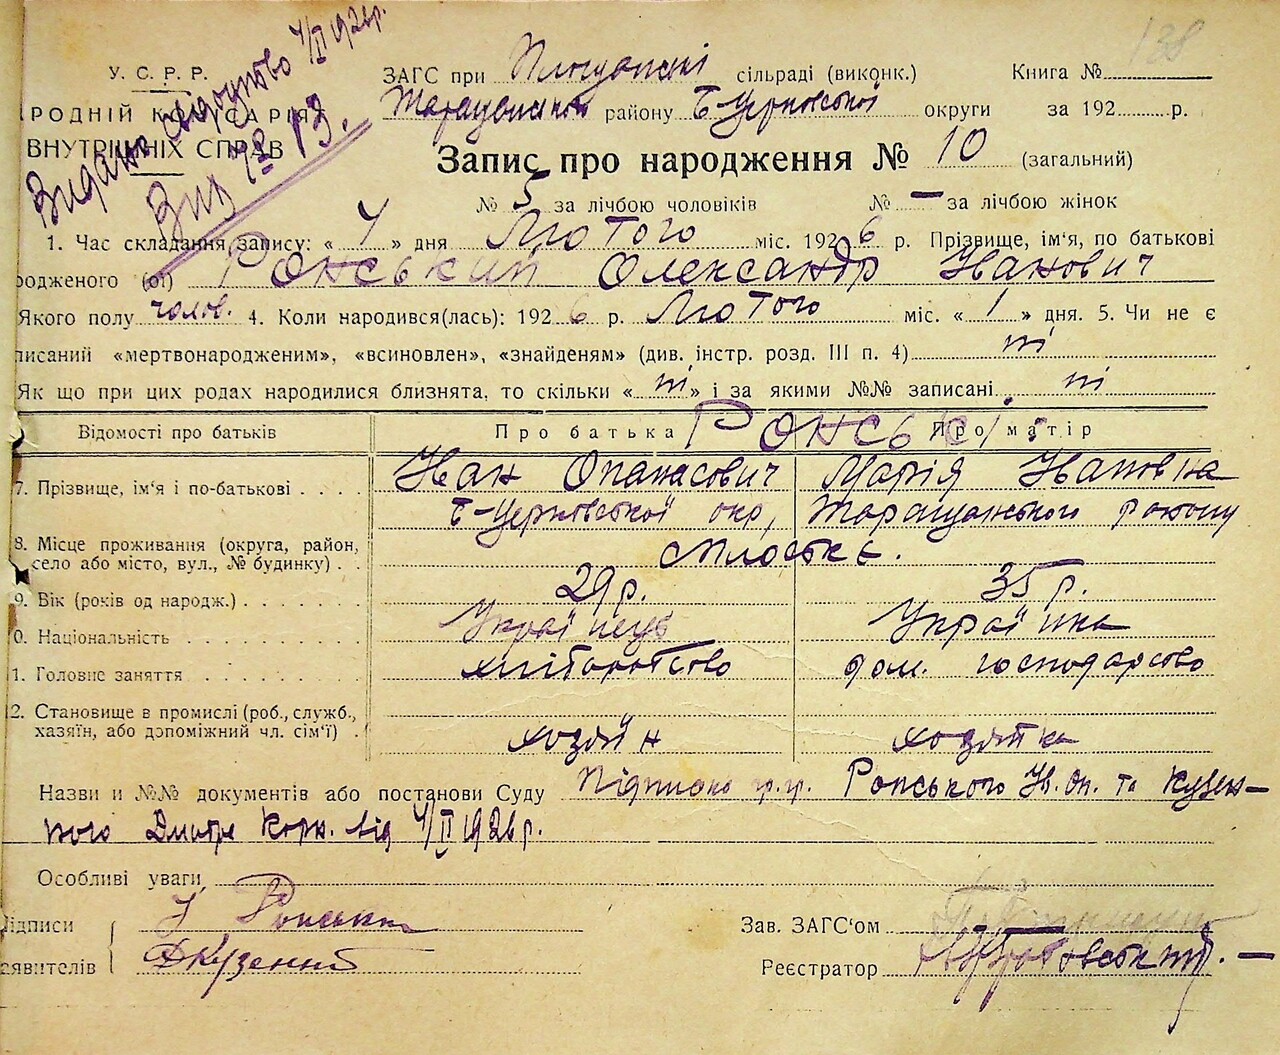 138
Видано свідоцтво 4/II 1926р.
Вид № 13.
У. С. Р. Р.
РОДНІЙ КОМІСАРІЯТ
ВНУТРІШНІХ СПРАВ
ЗАГС при сільраді (виконк.) Книга №
Таращанськ району Б-Церковської округи за 192 р.
Запис про народження № 10 (загальний)
№ 5 за лічбою чоловіків № — за лічбою жінок
1. Час складання запису: « 4 » дня Лютого міс. 1926 р. Прізвище, ім'я, по батькові
родженого (ої) Ронський Олександр Іванович
Якого полу чолов. 4. Коли народився(лась): 1926 р. Лютого міс. « 1 » дня. 5. Чи не є
писаний «мертвонародженим», «всиновлен», «знайденям» (див. інстр. розд. III п. 4) ні
Як що при цих родах народилися близнята, то скільки « ні » і за якими №№ записані ні
Відомості про батьків Про батька Про матір
Ронські
7. Прізвище, ім'я і по-батькові Іван Опанасович Марія Івановна
Б-Церковської окр, Таращанського району
8. Місце проживання (округа, район,
село або місто, вул., № будинку)
9. Вік (років од народж.) 29 р. 35 р.
0. Національність Українець Українка
1. Головне заняття хліборобство дом. господарство
2. Становище в промислі (роб., служб.,
хазяїн, або допоміжний чл. сім'ї) хозяїн хозяйка
Назви и №№ документів або постанови Суду Підписка гр.гр. Ронського Ів. Оп. та Кузен-
ного Дмитра Корн. від 4/II 1926 р.
Особливі уваги
ідписи І Ронський
аявителів Д Кузенний
Зав. ЗАГС'ом
Реєстратор